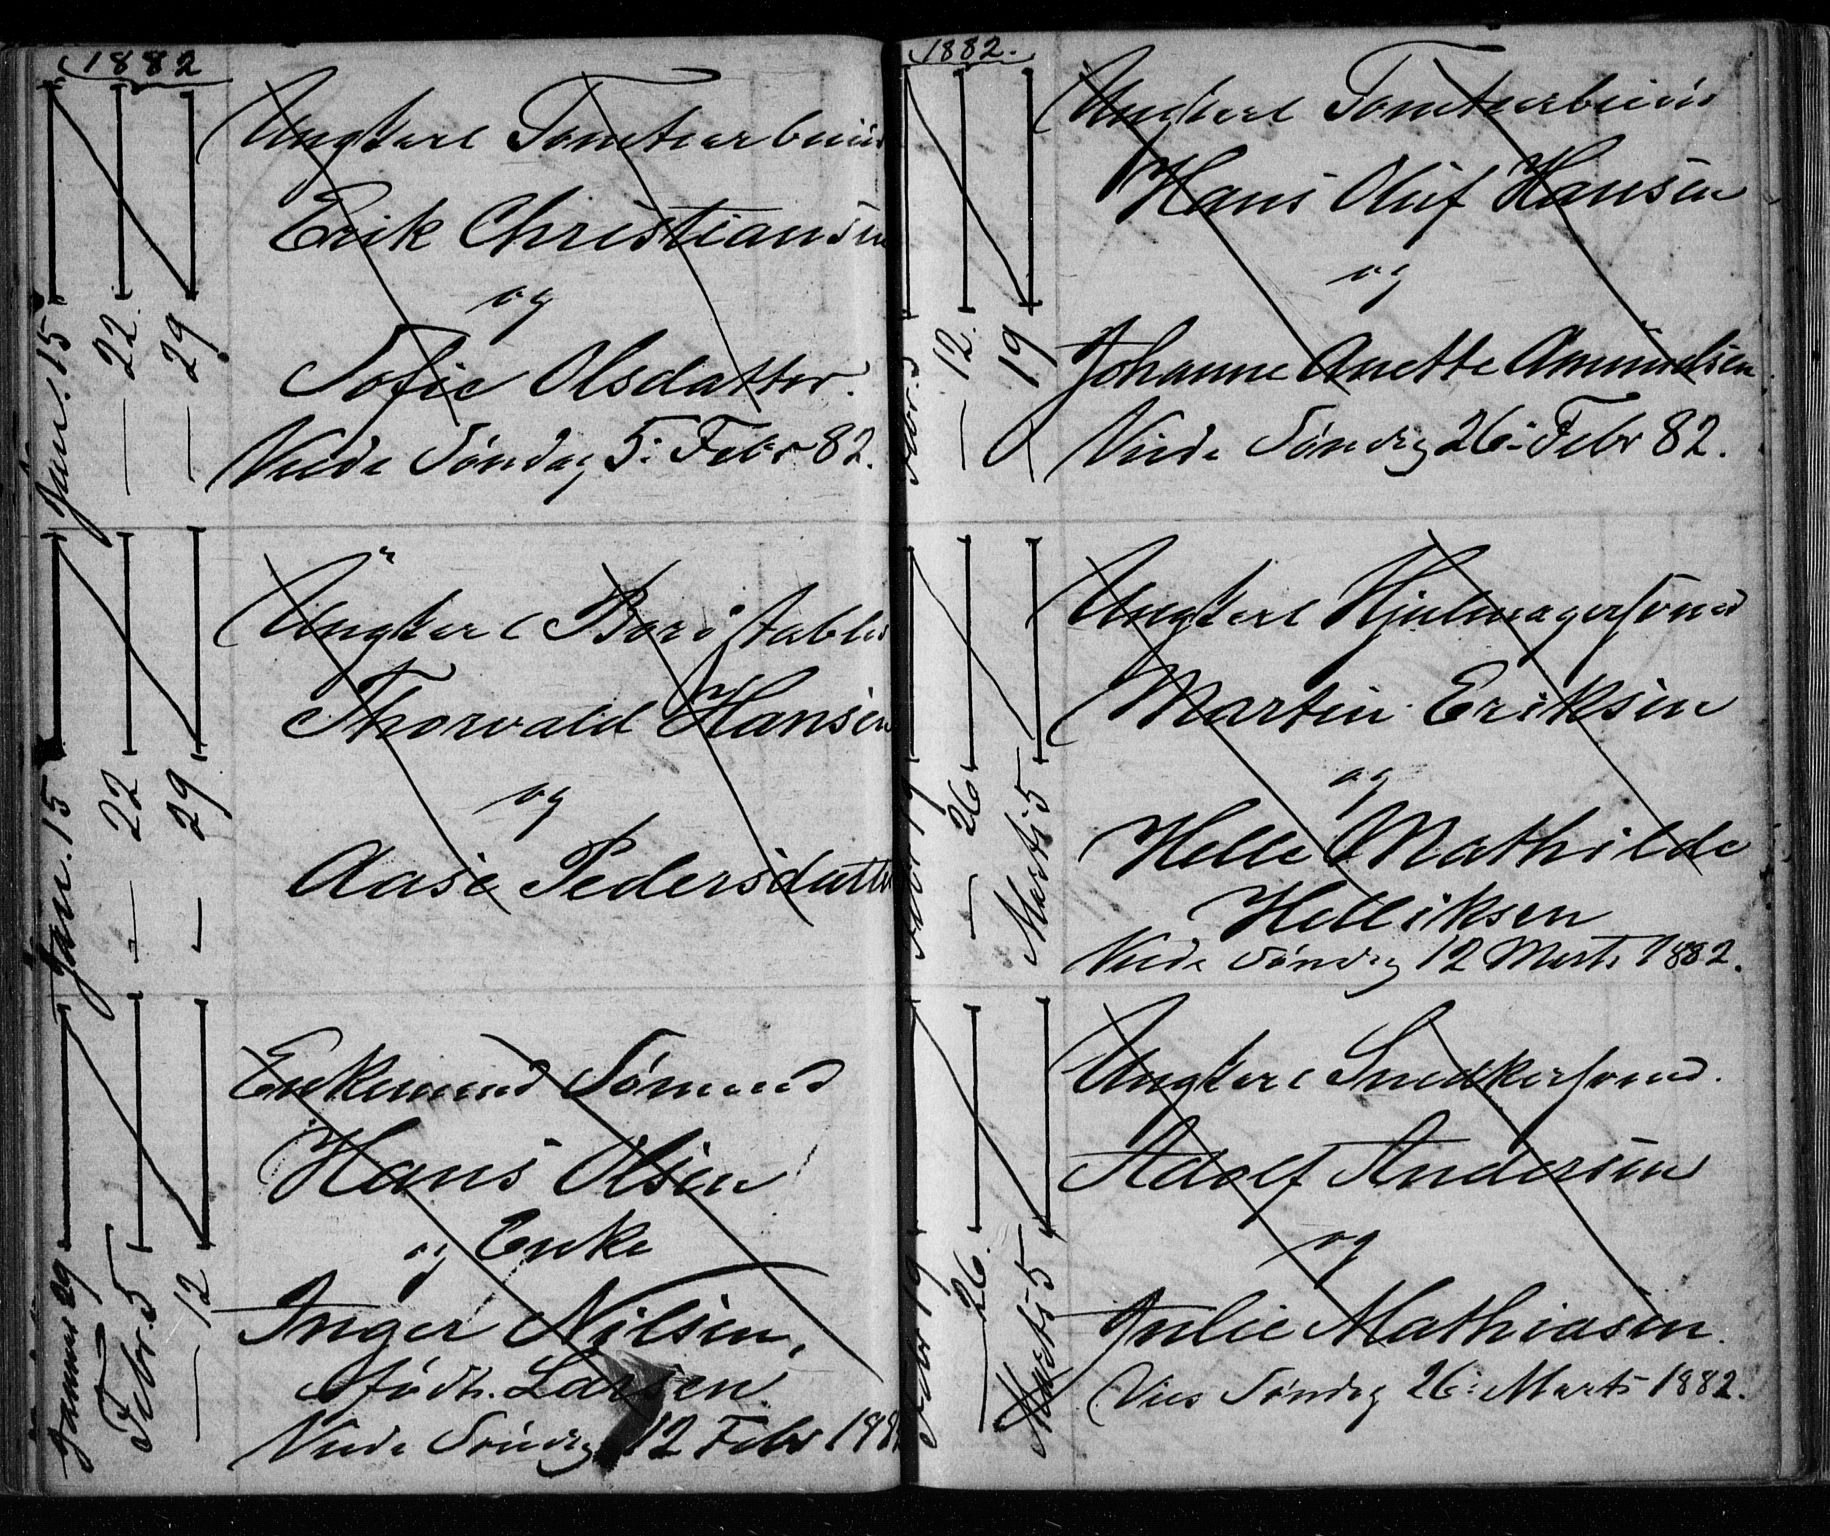 1882
Ungkarl Tomtearbeid
Erik Christiansen
og
Sofie Olsdatter.
Viede Søndag 5: Febr 82.
Jan. 15
— 22.
— 29
Ungkarl
Thorvald Hansen
og
Aase Pedersdatter
Jan. 15
— 22
— 29
Enkemand Sømand
Hans Olsen
og Enke
Inger Nilsen,
født. Larsen.
Viede Søndag 12 Febr 188
Januar 29
Febr 5
— 12
1882.
Ungkarl Tomtearbeid
Hans Oluf Hansen
og
Johanne Anette Amundsen.
Viede Søndag 26: Febr 82.
Febr. 5
— 12.
— 19
Ungkarl Hjulmagersvend
Martin Eriksen
og
Helle Mathilde
Helliksen
Viede Søndag 12 Marts 1882.
Febr 19
— 26
Marts 5
Ungkarl Snedkersvend.
Adolf Andersen
og
Julie Mathiasen.
Vies Søndag 26: Marts 1882.
Febr 19
— 26.
Marts 5